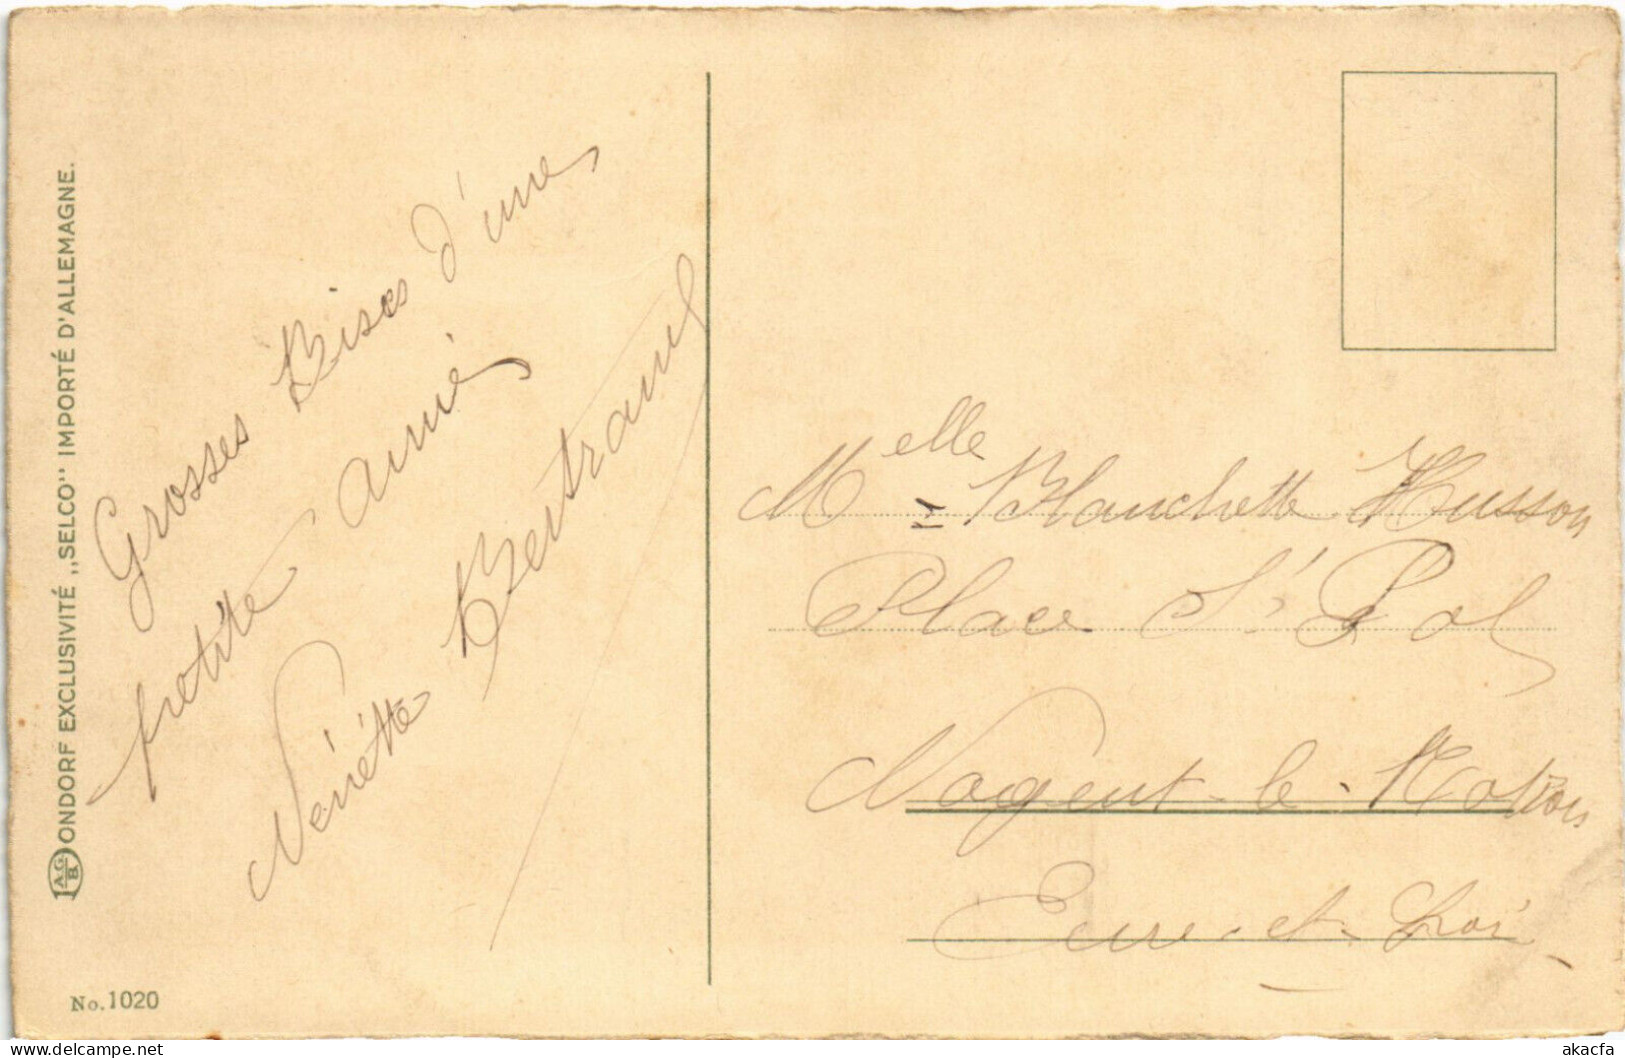 Grosses Bises d'une
petite amie
Nénette Bertrand
Melle Blanchette Husson
Place St Pol
Nogent-le-Rotrou
Eure-et-Loir
ONDORF EXCLUSIVITÉ „SELCO" IMPORTÉ D'ALLEMAGNE.
A.G.
B.
No. 1020
akacfa